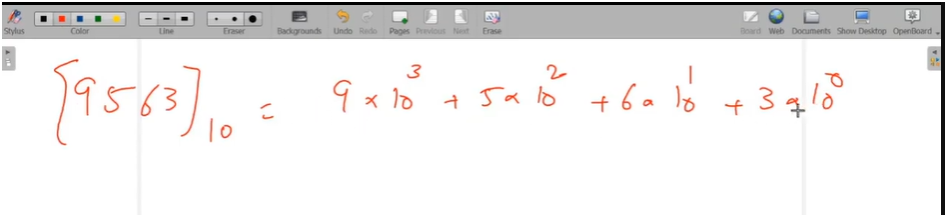 Stylus Color Line Eraser Backgrounds Undo Redo Pages Previous Next Erase Board Web Documents Show Desktop OpenBoard
[9563]₁₀ = 9 × 10³ + 5 × 10² + 6 × 10¹ + 3 × 10⁰